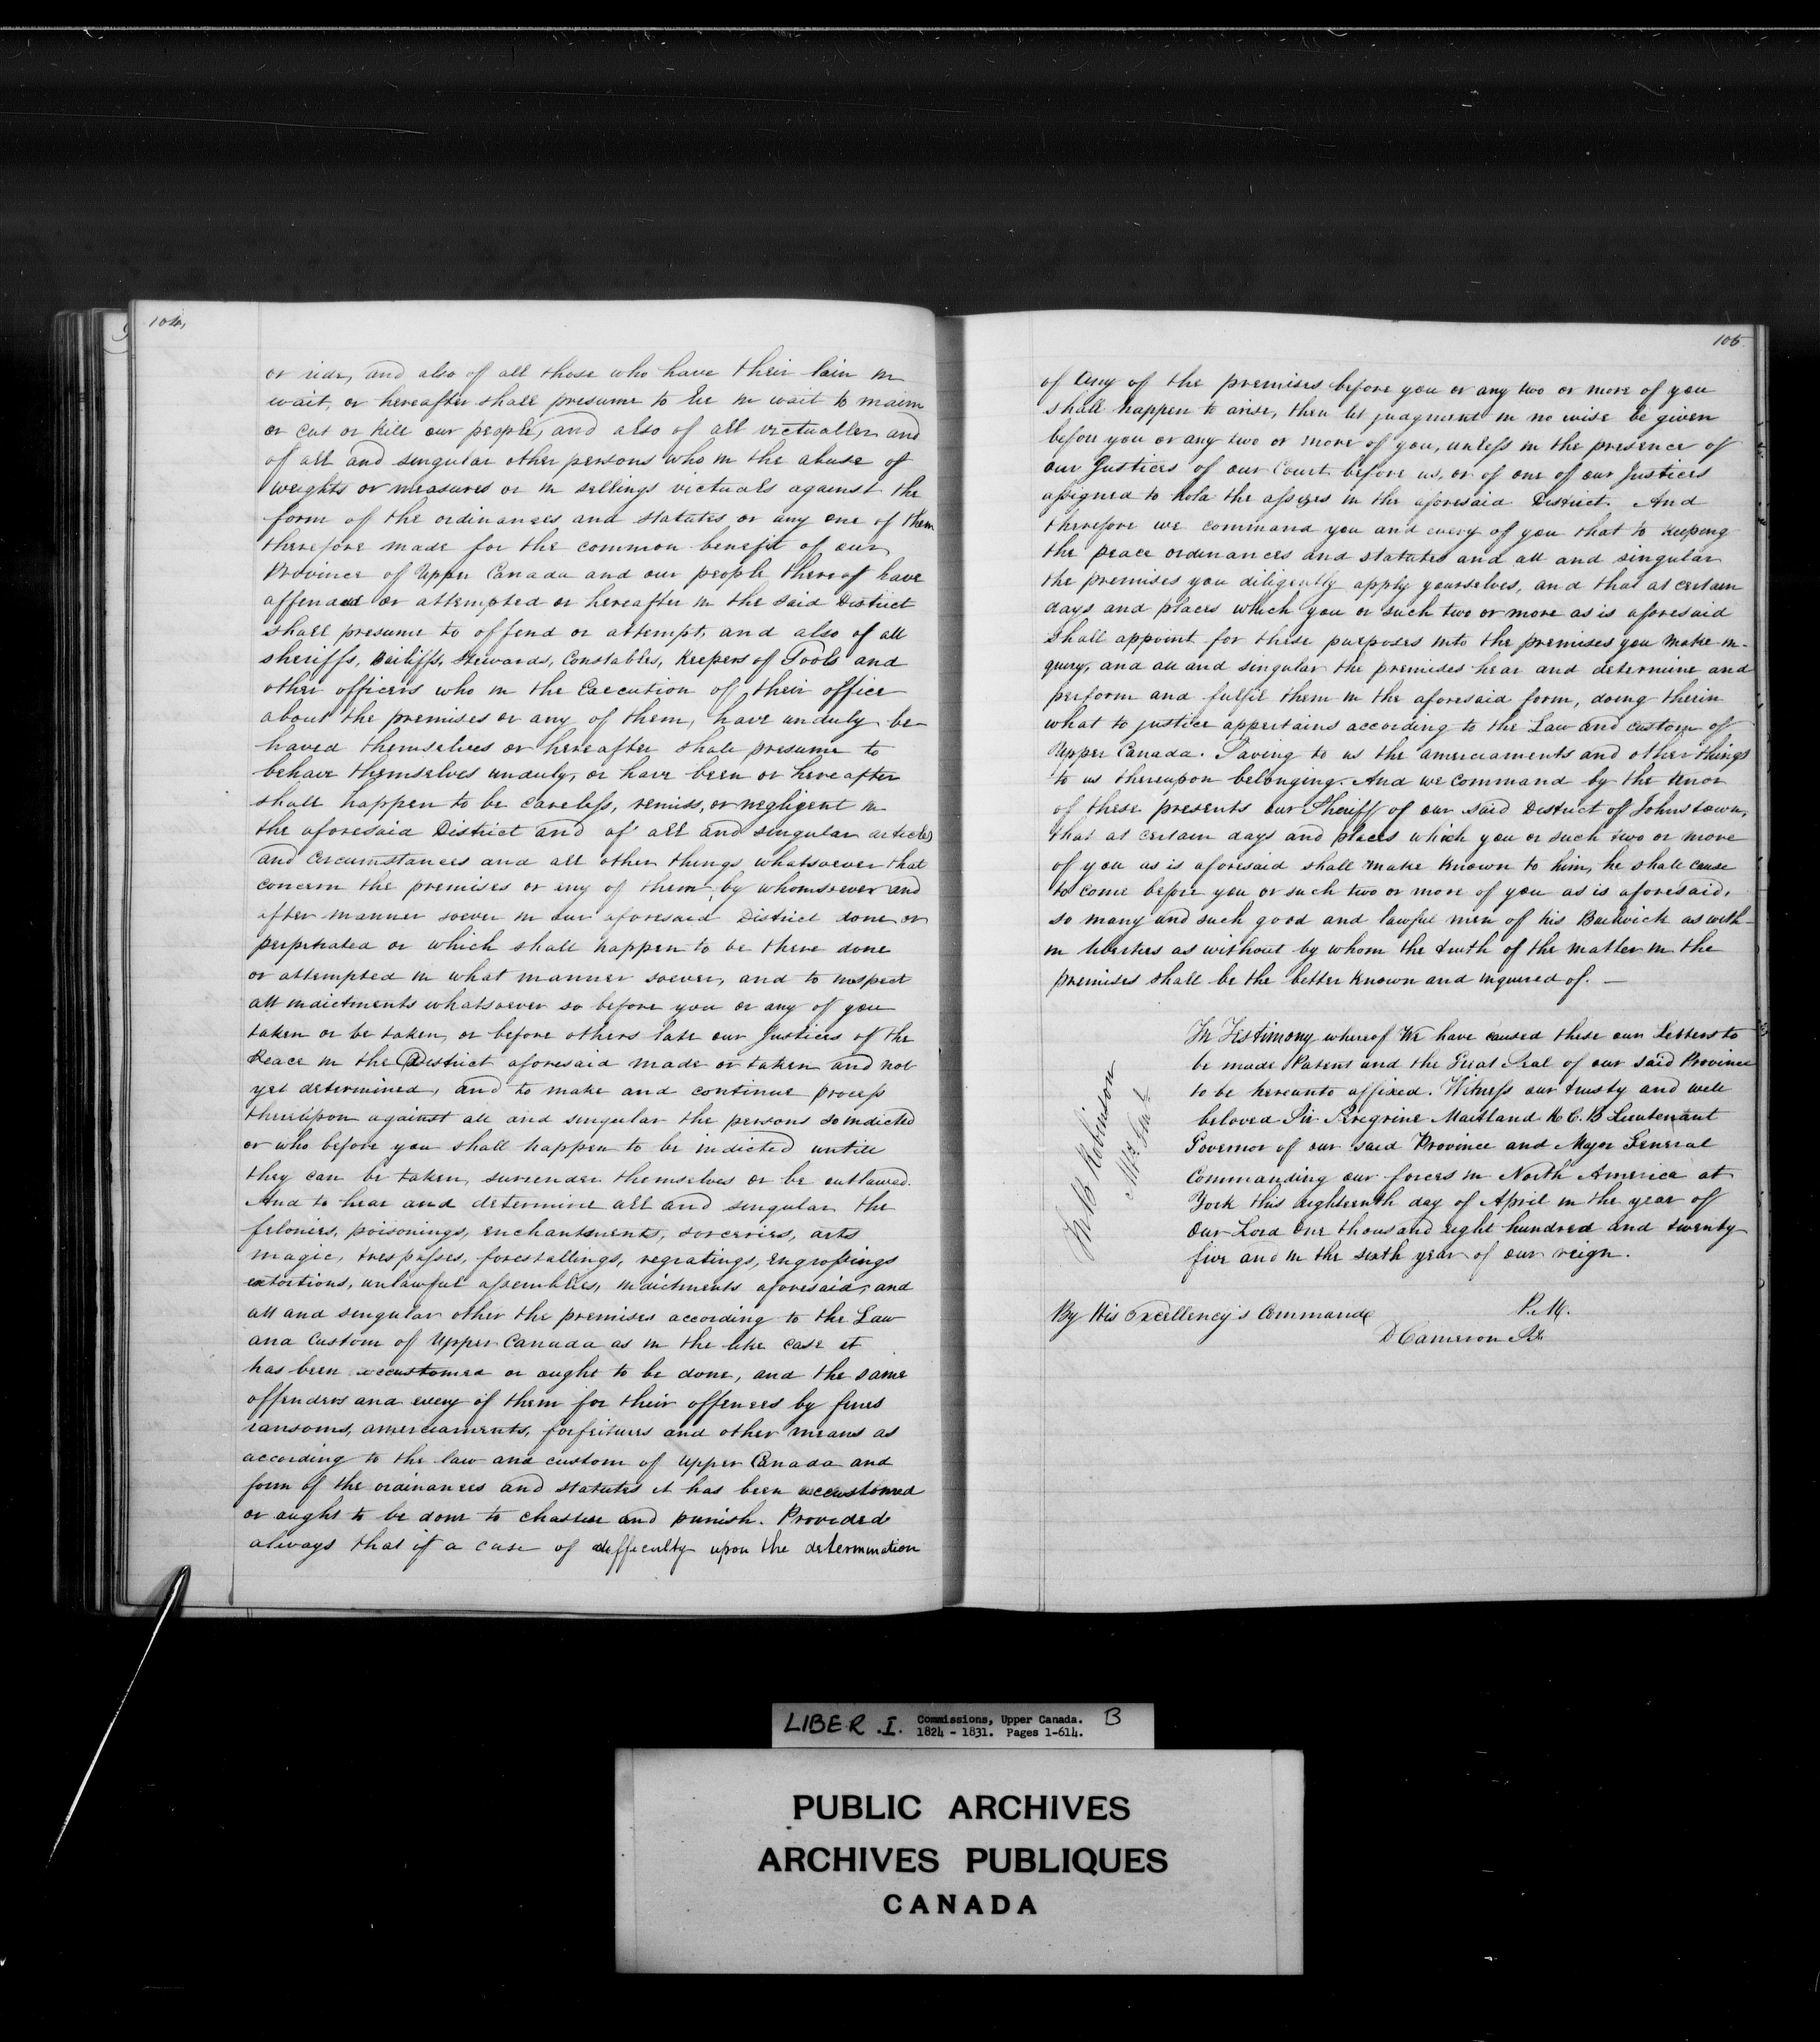 104,
or ride, and also of all those who have their lain in
wait, or hereafter shall presume to lie in wait to maim
or cut or kill our people, and also of all victuallers and
of all and singular other persons who in the abuse of
weights or measures or in sellings victuals against the
form of the ordinances and statutes or any one of them
therefore made for the common benefit of our
Province of Upper Canada and our people thereof have
affended or attempted or hereafter in the said District
shall presume to offend or attempt, and also of all
sheriffs, Bailiffs, Stewards, Constables, Keepers of Gools and
other officers who in the Execution of their office
about the premises or any of them, have unduly be-
haved themselves or hereafter shall presume to
behave themselves unduly, or have been or hereafter
shall happen to be careless, remiss, or negligent in
the aforesaid District and of all and singular articles
and Circumstances and all other things whatsoever that
concern the premises or any of them by whomsoever and
after manner soever in our aforesaid District done or
perpetrated or which shall happen to be there done
or attempted in what manner soever, and to inspect
all indictments whatsoever so before you or any of you
taken or be taken, or before others late our Justices of the
Peace in the District aforesaid made or taken and not
yet determined, and to make and continue process
thereupon against all and singular the persons so indicted
or who before you shall happen to be indicted untill
they can be taken, surrender themselves or be outlawed.
And to hear and determine all and singular the
felonies, poisonings, enchantments, sorceries, arts
magic, trespasses, forestallings, regratings, engrossings
extortions, unlawful assemblies, indictments aforesaid, and
all and singular other the premises according to the Law
and Custom of Upper Canada as in the like case it
has been accustomed or ought to be done, and the same
offenders and every of them for their offenses by fines
ransoms, amerciaments, forfeitures and other means as
according to the law and custom of Upper Canada and
form of the ordinances and statutes it has been accustomed
or ought to be done to chastise and punish. Provided
always that if a case of difficulty upon the determination
105
of any of the premises before you or any two or more of you
shall happen to arise, then let judgment in no wise be given
before you or any two or more of you, unless in the presence of
our Justices of our Court before us, or of one of our Justices
assigned to hold the assizes in the aforesaid District. And
therefore we command you and every of you that to keeping
the peace ordinances and statutes and all and singular
the premises you diligently apply yourselves, and that at certain
days and places which you or such two or more as is aforesaid
shall appoint for these purposes into the premises you make in-
query, and all and singular the premises hear and determine and
perform and fulfil them in the aforesaid form, doing therein
what to justice appertains according to the Law and custom of
Upper Canada. Saving to us the amerciaments and other things
to us thereupon belonging. And we command by the tenor
of these presents our Sheriff of our said District of Johnstown,
that at certain days and places which you or such two or more
of you as is aforesaid shall make known to him, he shall cause
to come before you or such two or more of you as is aforesaid,
so many and such good and lawful men of his Bailwick as with-
in liberties as without by whom the truth of the matter in the
premises shall be the better known and inquired of. —
In Testimony whereof We have caused these our Letters to
be made Patent and the Great Seal of our said Province
to be hereunto affixed. Witness our trusty and well
beloved Sir Peregrine Maitland K C. B Lieutenant
Governor of our said Province and Major General
Commanding our forces in North America at
York this eighteenth day of April in the year of
Our Lord One thousand eight hundred and twenty
five and in the sixth year of our reign.
Robinson
By His Excellency's Command P. M.
D Cameron
LIBER .I. Commissions, Upper Canada. B
1824 - 1831. Pages 1-614.
PUBLIC ARCHIVES
ARCHIVES PUBLIQUES
CANADA